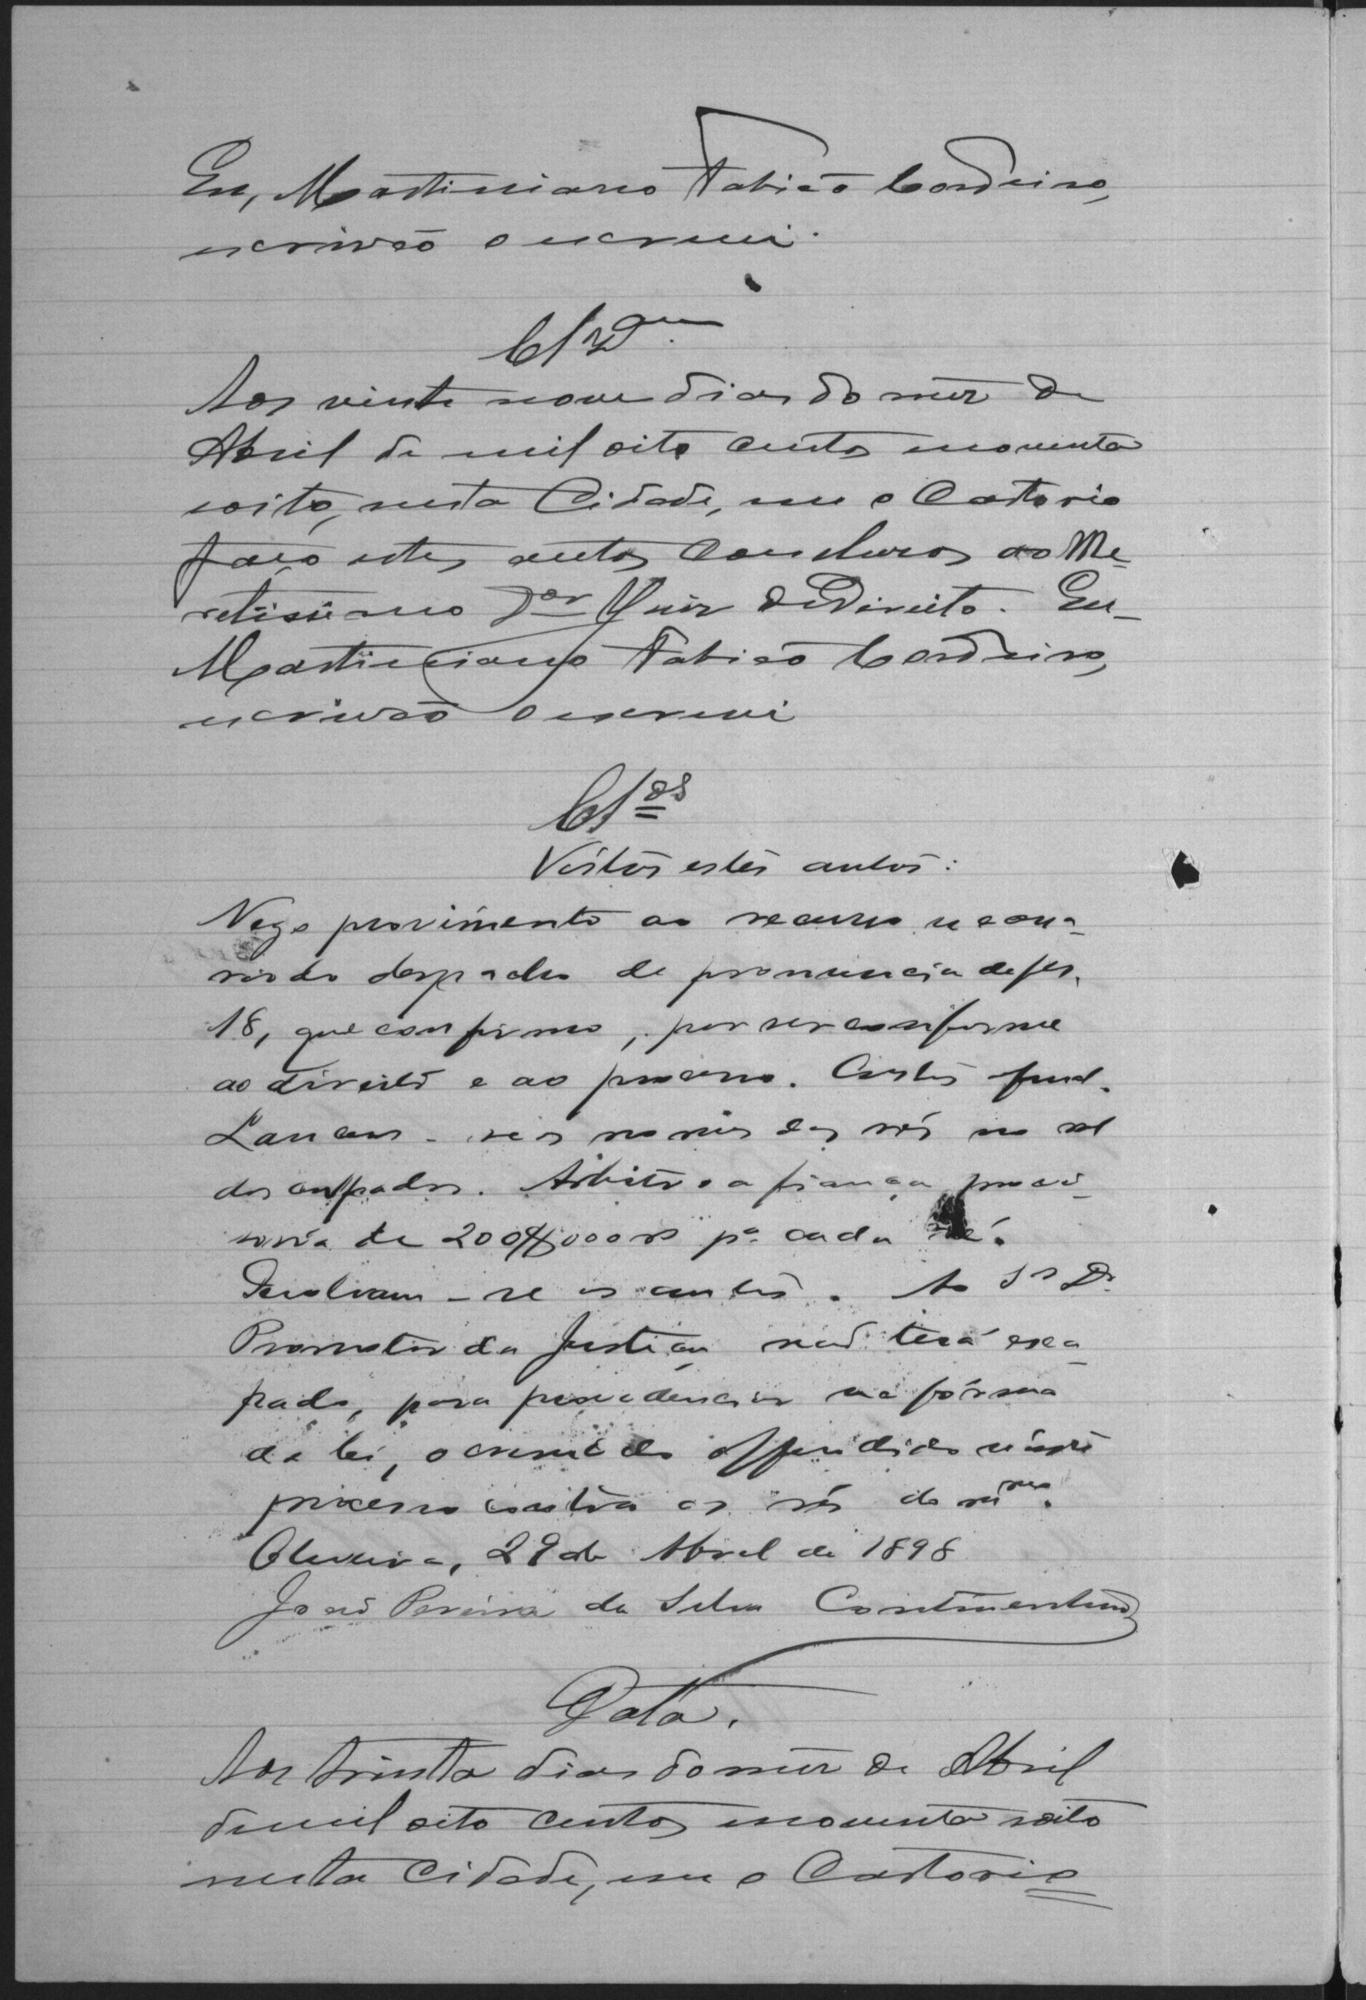 Eu, Martiniano Fabião Cordeiro,
escrivão o escrevi.
Clzam.
Aos vinte nove dias do mez de
Abril de mil oito centos e noventa
e oito, nesta Cidade, em o Cartorio
faço estes autos conclusos ao Me-
retissimo Dor Juiz de Direito. Eu
Martiniano Fabião Cordeiro,
escrivão o escrevi
Clos
Vistos estes autos:
Nego provimento ao recurso necessa-
rio do despacho de pronuncia de fls.
18, que confirmo, por ser conforme
ao direito e ao processo. Custas
Lancem-se os nomes dos réos no rol
dos culpados. Arbitro a fiança provi-
soria de 200$000 rs pa cada réo.
Devolvam-se os autos. Ao Sr Dr
Promotor da Justiça não terá esca-
pado, para providenciar na fórma
da lei, o crime do offendido neste
processo contra os réos do mesmo.
Oliveira, 29 de Abril de 1898
João Pereira da Silva Continentino
Data.
Aos trinta dias do mez de Abril
de mil oito centos e noventa e oito
nesta Cidade, em o Cartorio